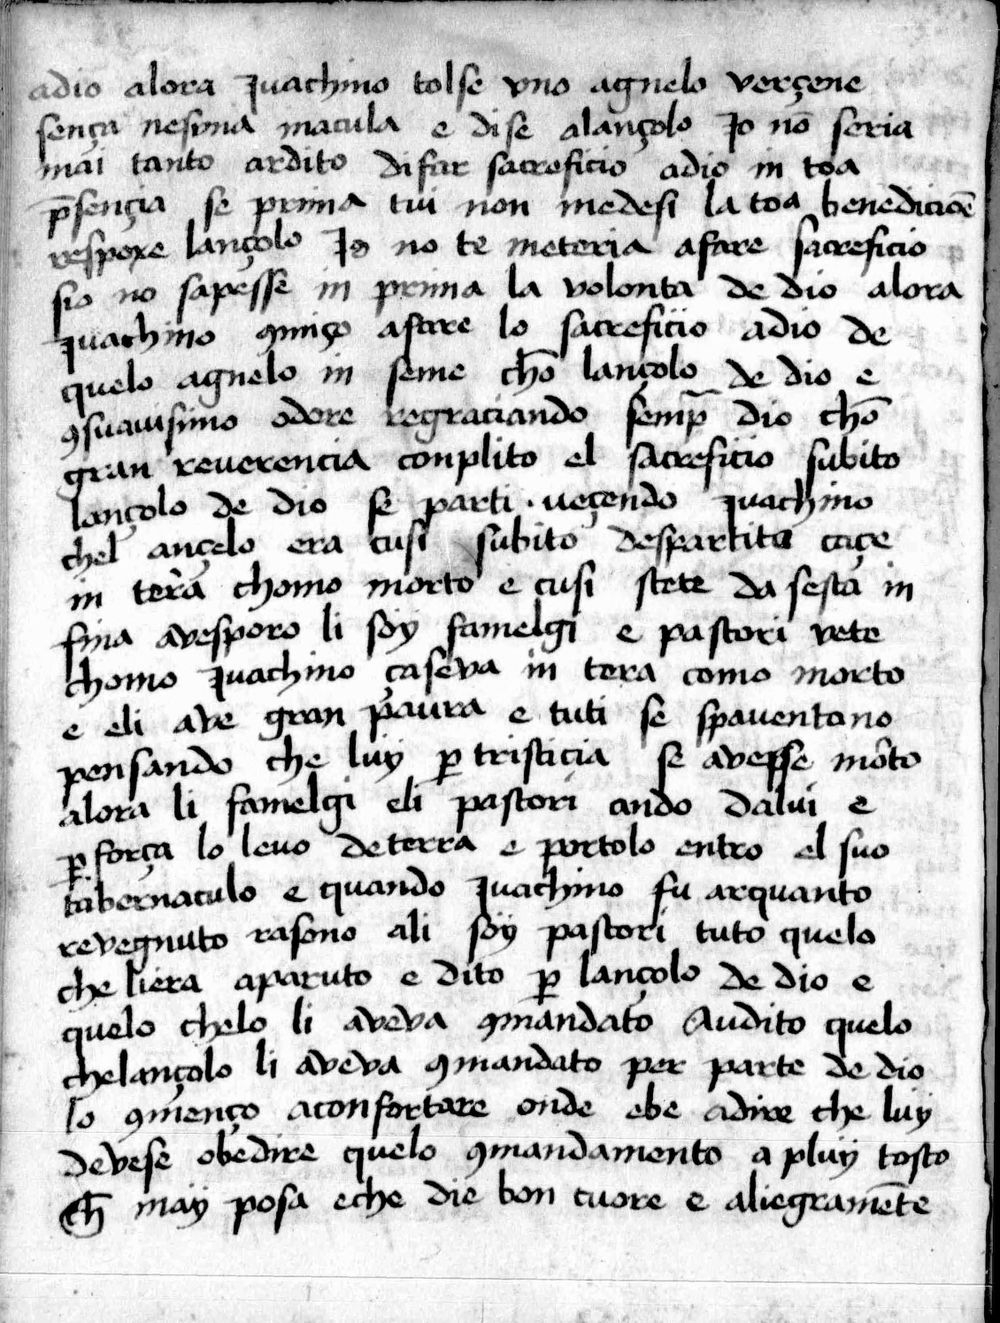 adio alora Juachino tolse vno agnelo verçene
sença nesuna macula e dise alançolo Jo nō seria
mai tanto ardito difar sacreficio adio in toa
p̄sençia se prima tui non medesi la toa benediciōe
respoxe lançolo Jo no te meteria afare sacreficio
sio no sapesse in prima la volonta de dio alora
Juachino ꝯmiço afare lo sacreficio adio de
quelo agnelo in seme chō lançolo de dio e
ꝯsuauisimo odore regraciando semp̄ dio chō
gran reuerencia conplito el sacreficio subito
lançolo de dio se parti · veçendo Juachino
chel ançelo era cusi subito despartito caçe
in tera chomo morto e cusi stete da sesta in
fina avesporo li soy famelgi e pastori vete
chomo Juachino çaseva in tera como morto
e eli ave gran paura e tuti se spaventono
pensando che luy ꝑ tristicia se avesse morto
alora li famelgi eli pastori ando dalui e
ꝑ força lo leuo deterra e portolo entro el suo
tabernaculo e quando Juachino fu arquanto
revegnuto rasono ali soy pastori tuto quelo
che liera aparuto e dito ꝑ lançolo de dio e
quelo chelo li aveva ꝯmandato Audito quelo
chelançolo li aveva ꝯmandato per parte de dio
lo ꝯmenço aconfortare onde ebe adire che luy
devese obedire quelo ꝯmandamento a pluy tosto
may posa eche die bon cuore e aliegramēte